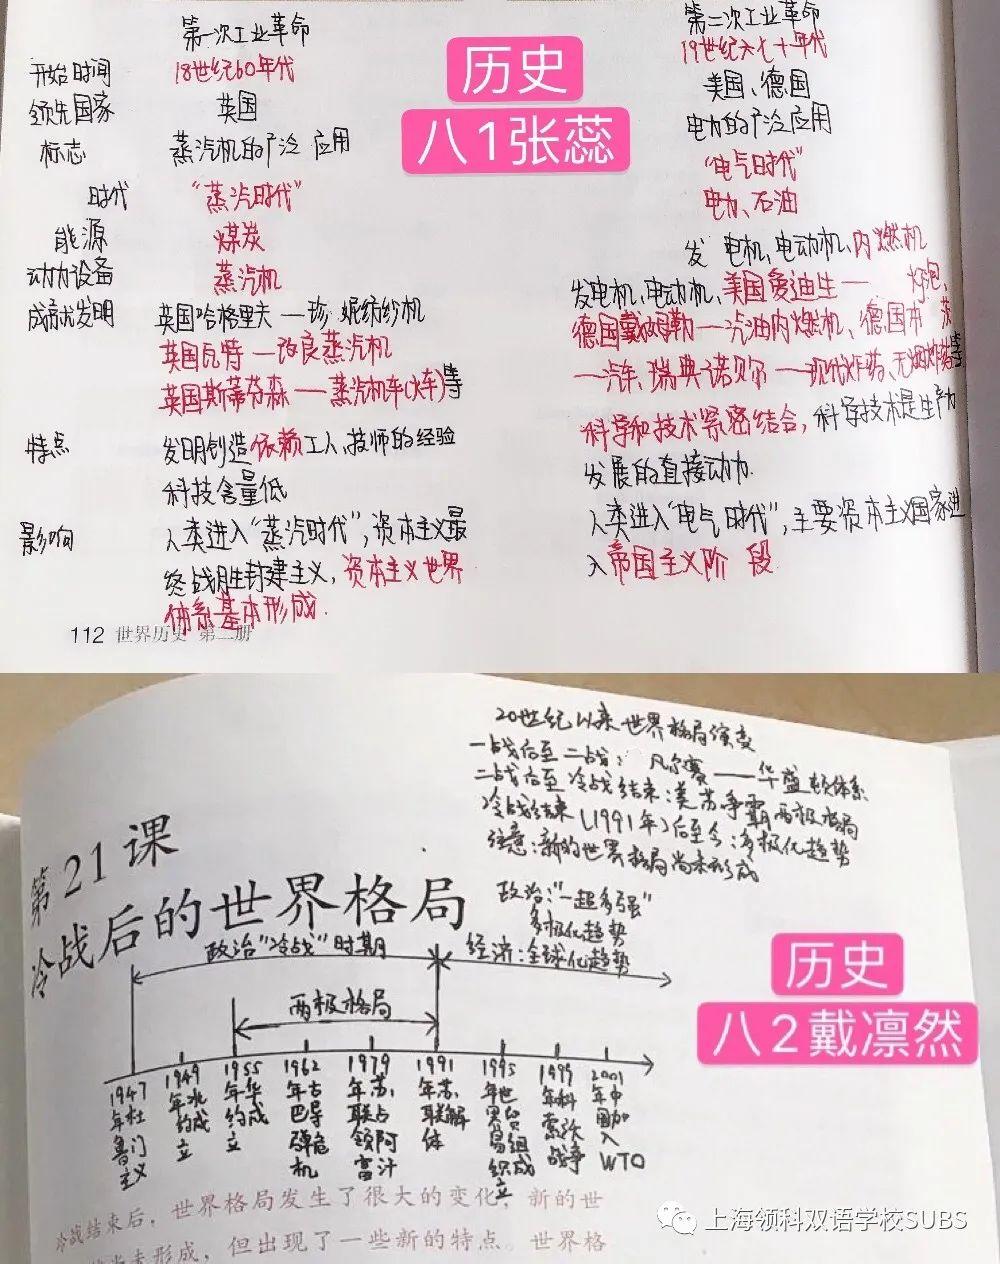 第一次工业革命
第二次工业革命
开始时间
18世纪60年代
19世纪六七十年代
历史
八1张蕊
领先国家
英国
美国、德国
标志
蒸汽机的广泛应用
电力的广泛应用
时代
"蒸汽时代"
"电气时代"
能源
煤炭
电力、石油
动力设备
蒸汽机
发 电机、电动机、内燃机
成就发明
英国哈格里夫—珍妮纺纱机
英国瓦特—改良蒸汽机
英国斯蒂芬森——蒸汽机车(火车)等
发电机、电动机、美国爱迪生— 灯泡、
德国戴姆勒—汽油内燃机、德国本茨
—汽车、瑞典诺贝尔——现代炸药、无烟炸药等
特点
发明创造依赖工人、技师的经验
科技含量低
科学和技术紧密结合，科学技术是生产力
发展的直接动力.
影响
人类进入"蒸汽时代"，资本主义最
终战胜封建主义，资本主义世界
体系基本形成.
人类进入"电气时代"，主要资本主义国家进
入帝国主义阶段.
112 世界历史 第二册
20世纪以来世界格局演变
一战后至二战：凡尔赛——华盛顿体系
二战后至冷战结束：美苏争霸两极格局
冷战结束(1991年)后至今：多极化趋势
注意：新的世界格局尚未形成
第21课
冷战后的世界格局
政治："一超多强"
多极化趋势
经济：全球化趋势
政治"冷战"时期
两极格局
历史
八2戴凛然
1947年杜鲁门主义
1949年北约成立
1955年华约成立
1962年古巴导弹危机
1979年苏联占领阿富汗
1991年苏联解体
1995年世界贸易组织成立
1999年科索沃战争
2001年中国加入WTO
冷战结束后，世界格局发生了很大的变化，新的世
形成，但出现了一些新的特点。世界格
上海领科双语学校SUBS